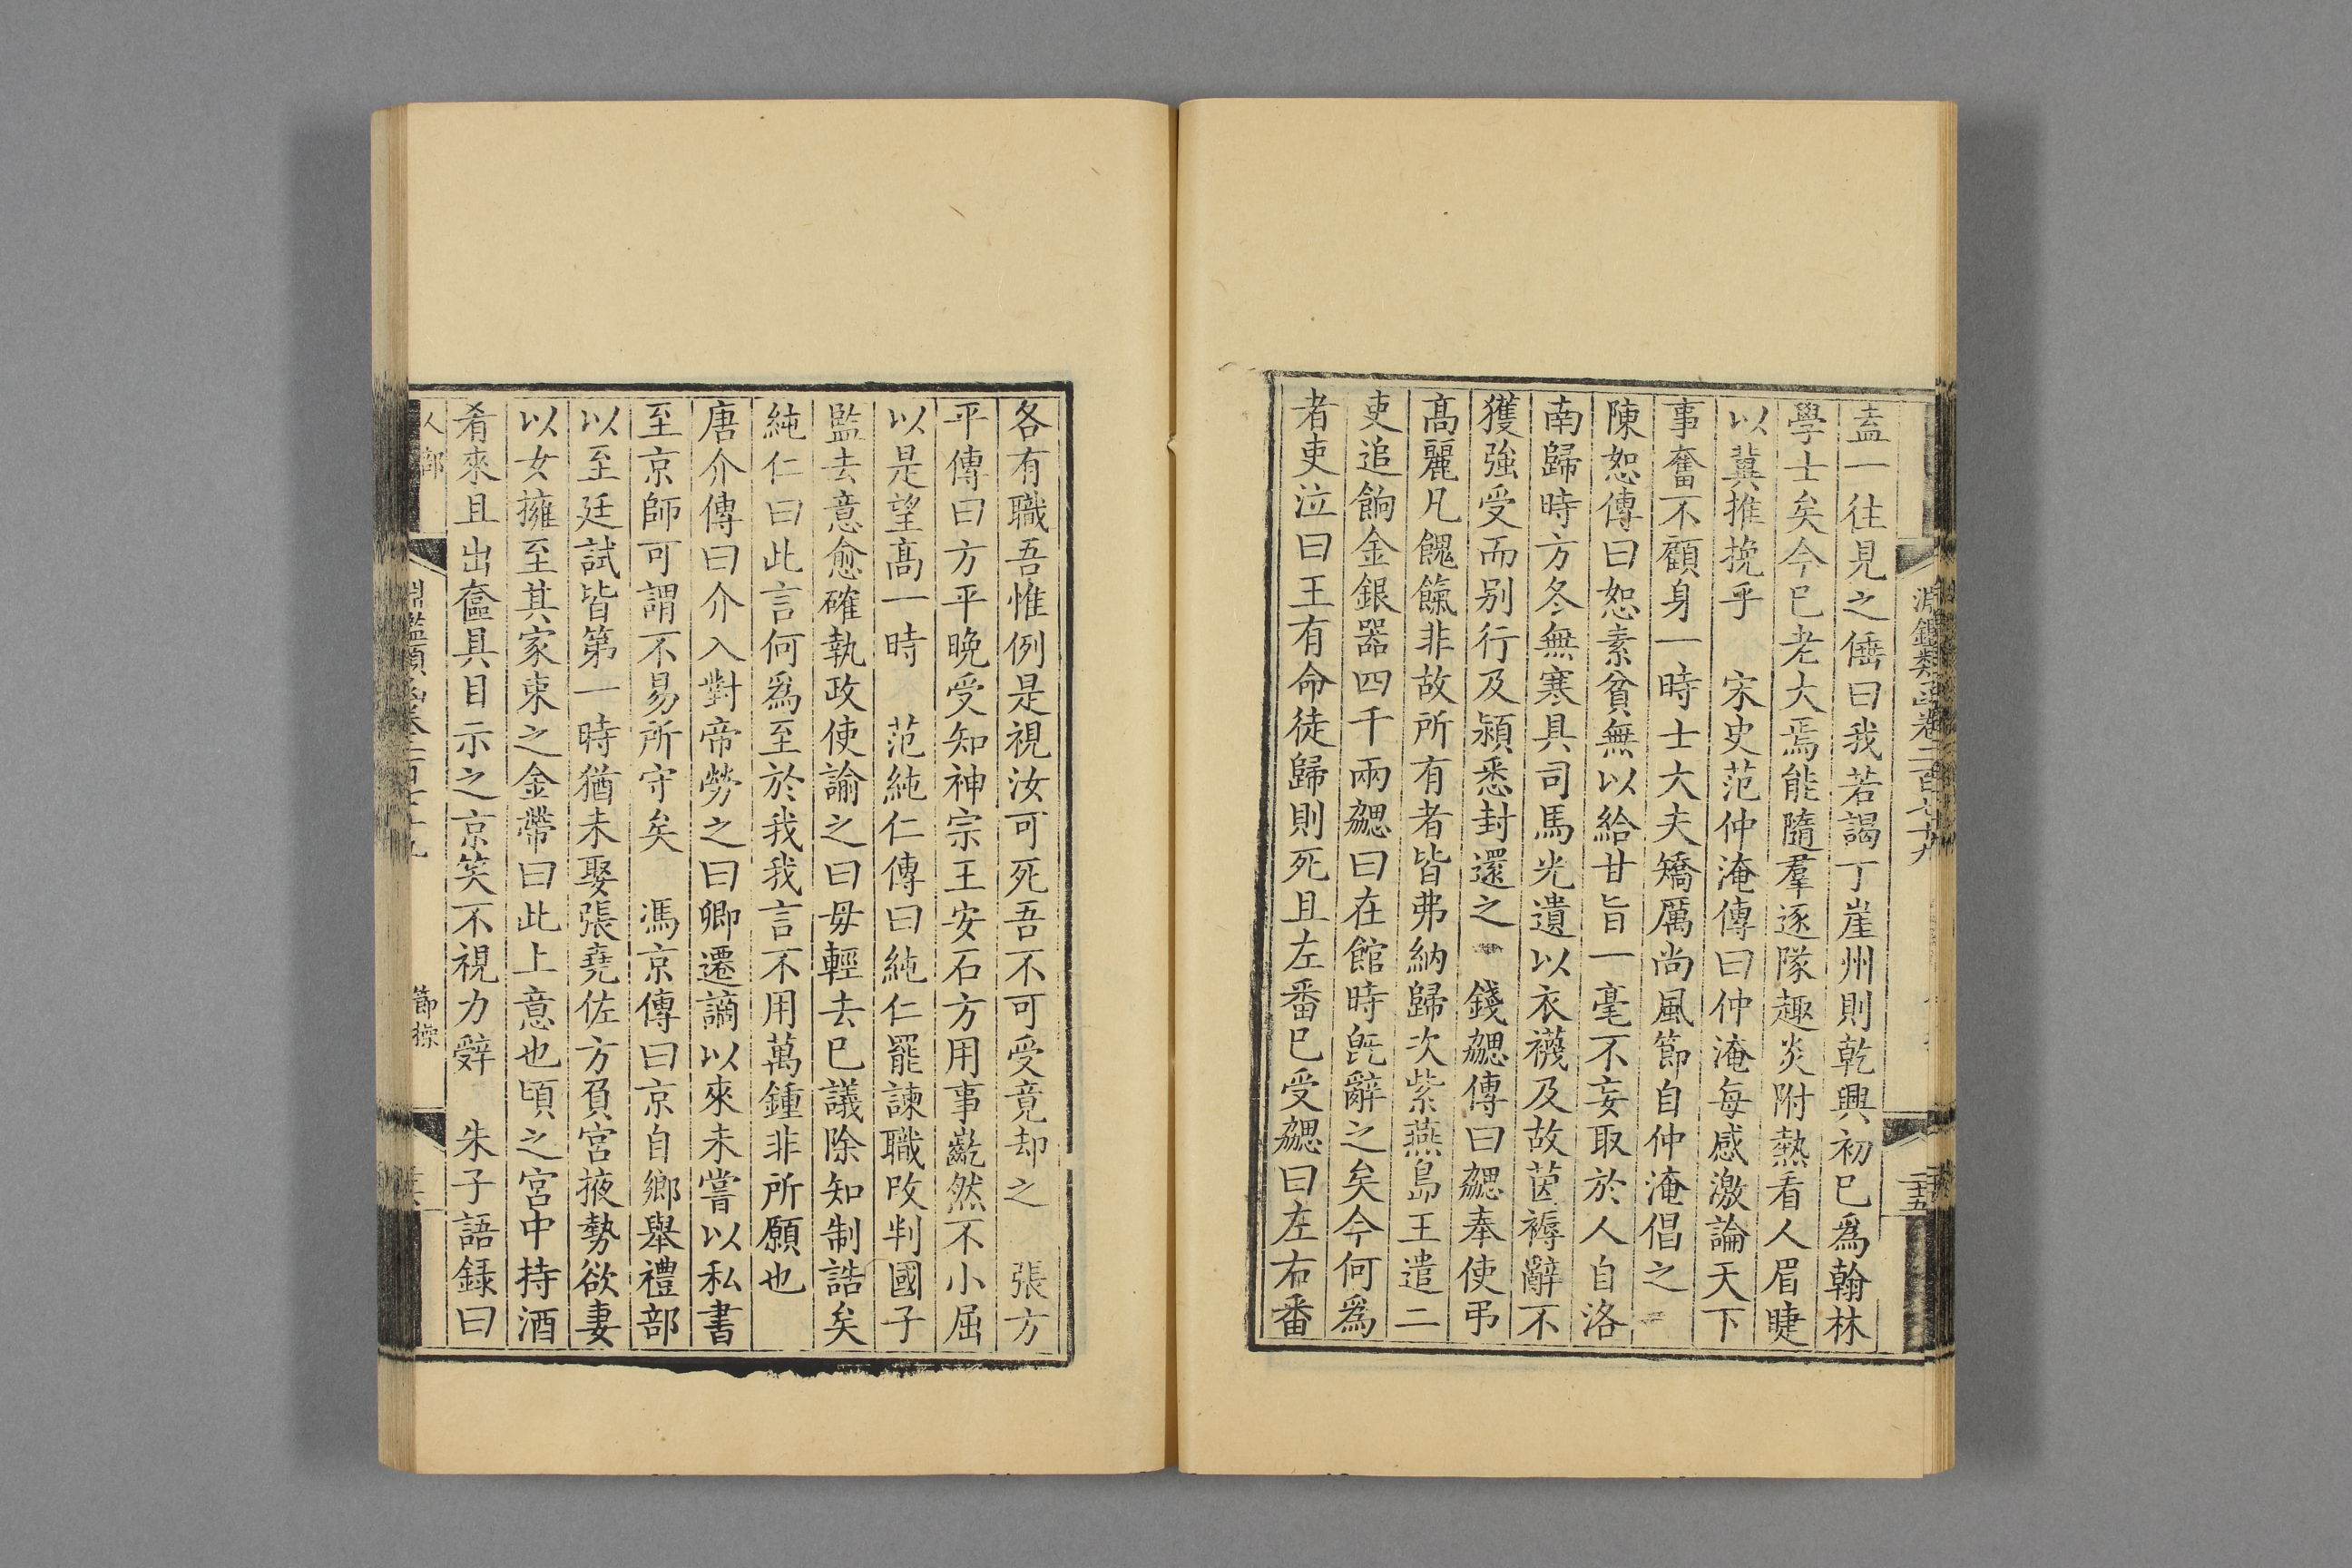 淵鑑類函卷二百七十九
二十五
盍一往見之倕曰我若謁丁崖州則乾興初巳爲翰林
學士矣今巳老大焉能隨羣逐隊趣炎附熱看人眉睫
以冀推挽乎 宋史范仲淹傳曰仲淹每感激論天下
事奮不顧身一時士大夫矯厲尚風節自仲淹倡之
陳恕傳曰恕素貧無以給甘旨一毫不妄取於人自洛
南歸時方冬無寒具司馬光遺以衣襪及故茵褥辭不
獲強受而别行及潁悉封還之 錢勰傳曰勰奉使弔
髙麗凡餽餼非故所有者皆弗納歸次紫燕島王遣二
吏追餉金銀器四千兩勰曰在館時旣辭之矣今何爲
者吏泣曰王有命徒歸則死且左番巳受勰曰左右番
各有職吾惟例是視汝可死吾不可受竟却之 張方
平傳曰方平晚受知神宗王安石方用事嶷然不小屈
以是望髙一時 范純仁傳曰純仁罷諫職改判國子
監去意愈確執政使諭之曰毋輕去巳議除知制誥矣
純仁曰此言何爲至於我我言不用萬鍾非所願也
唐介傳曰介入對帝勞之曰卿遷謫以來未嘗以私書
至京師可謂不易所守矣 馮京傳曰京自鄉舉禮部
以至廷試皆第一時猶未娶張堯佐方負宮掖勢欲妻
以女擁至其家束之金帶曰此上意也頃之宮中持酒
肴來且出奩具目示之京笑不視力辭 朱子語録曰
人部
節操